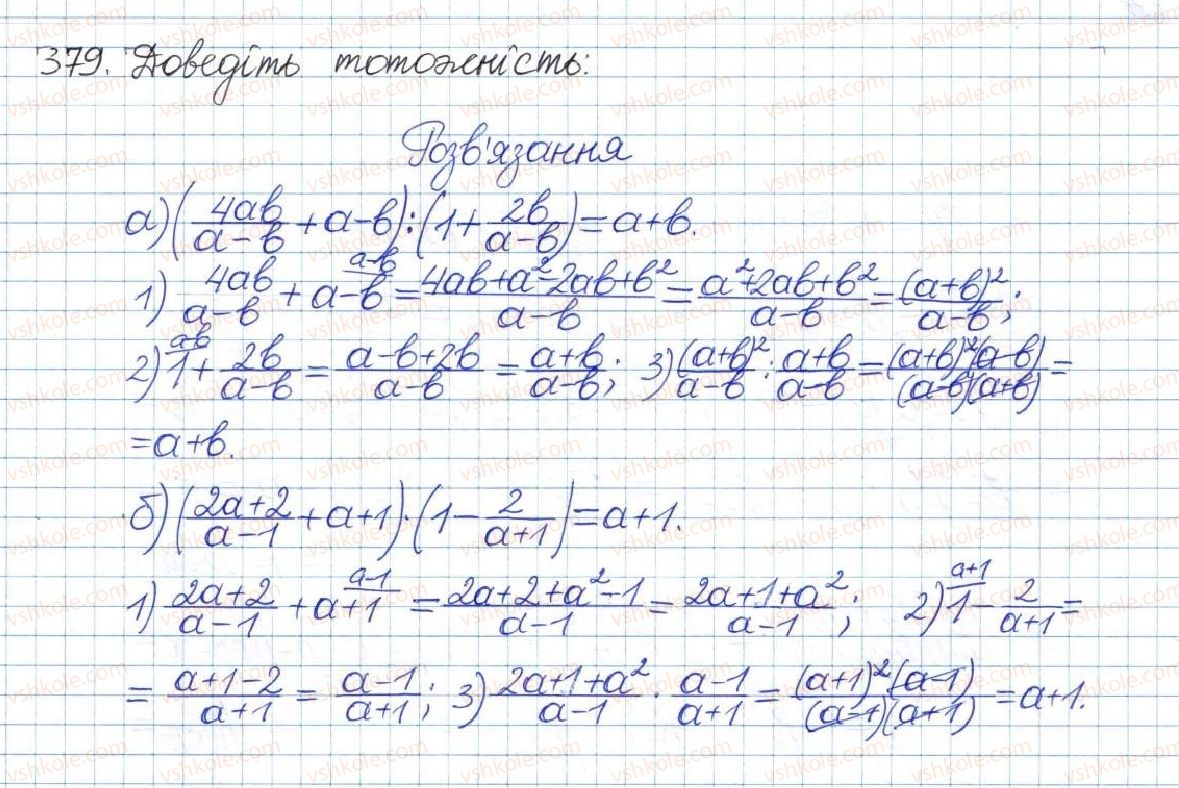 379. Доведіть тотожність:
Розв'язання
а) (4ab/(a-b) + a-b) : (1 + 2b/(a-b)) = a+b.
1) 4ab/(a-b) + a-b^(a-b) = (4ab+a²-2ab+b²)/(a-b) = (a²+2ab+b²)/(a-b) = (a+b)²/(a-b);
2) 1^(a-b) + 2b/(a-b) = (a-b+2b)/(a-b) = (a+b)/(a-b); 3) (a+b)²/(a-b) : (a+b)/(a-b) = (a+b)²(a-b)/((a-b)(a+b)) =
= a+b.
б) ((2a+2)/(a-1) + a+1) · (1 - 2/(a+1)) = a+1.
1) (2a+2)/(a-1) + a+1^(a-1) = (2a+2+a²-1)/(a-1) = (2a+1+a²)/(a-1); 2) 1^(a+1) - 2/(a+1) =
= (a+1-2)/(a+1) = (a-1)/(a+1); 3) (2a+1+a²)/(a-1) · (a-1)/(a+1) = (a+1)²(a-1)/((a-1)(a+1)) = a+1.
vshkole.com